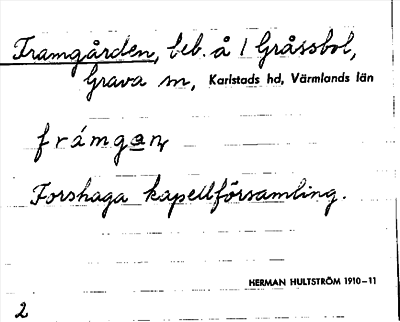 Framgården, beb. å 1 Gråssbol,
Grava sn, Karlstads hd, Värmlands län
frámgan,
Forshaga kapellförsamling.
HERMAN HULTSTRÖM 1910–11
2